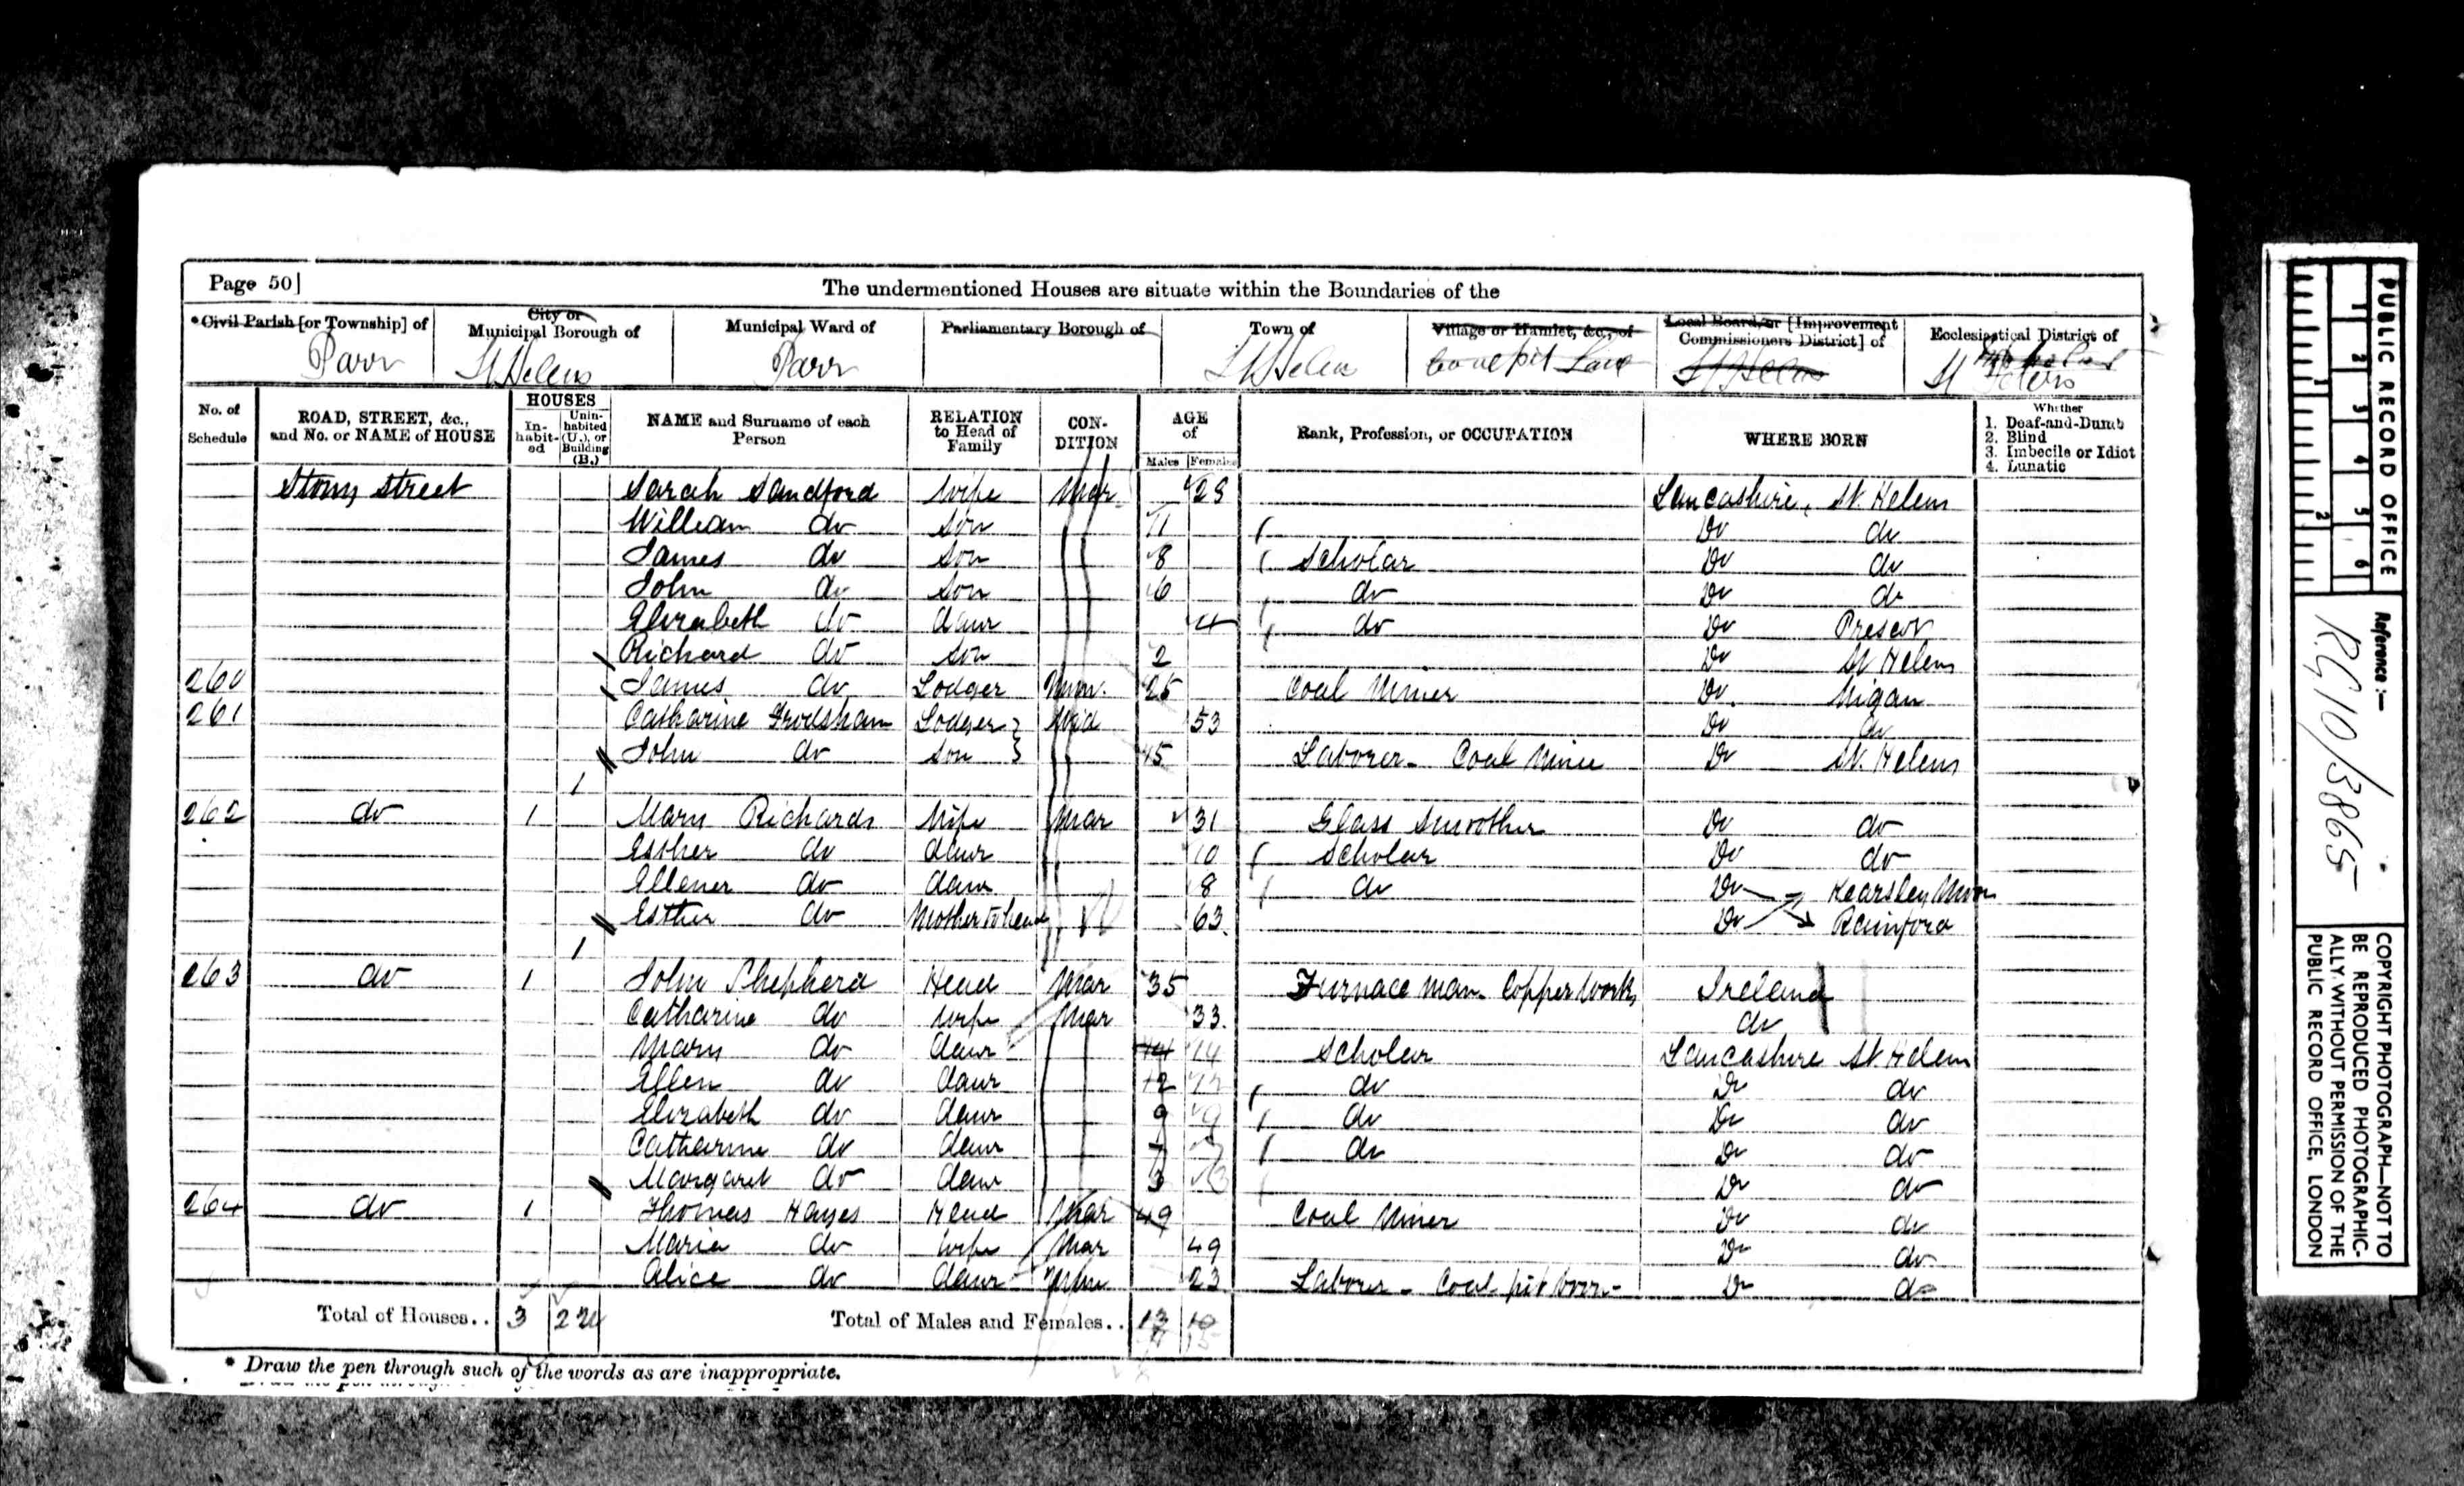 Page 50
The undermentioned Houses are situate within the Boundaries of the
*Civil Parish [or Township] of
Parr
City or Municipal Borough of
St Helens
Municipal Ward of
Parr
Parliamentary Borough of
Town of
St Helens
Village or Hamlet, &c., of
Local Board, or [Improvement Commissioners District] of
St Helens
Ecclesiastical District of
St Peters
No. of Schedule
ROAD, STREET, &c., and No. or NAME of HOUSE
HOUSES
In-habit-ed
Unin-habited (U.), or Building (B.)
NAME and Surname of each Person
RELATION to Head of Family
CON-DITION
AGE of
Males Females
Rank, Profession, or OCCUPATION
WHERE BORN
Whether
1. Deaf-and-Dumb
2. Blind
3. Imbecile or Idiot
4. Lunatic
Stony Street Sarah Sandford Wife Mar 28 Lancashire, St. Helens
William do Son 11 Do do
James do Son 8 Scholar Do do
John do Son 6 do Do do
Elizabeth do Daur 4 do Do Prescot
Richard do Son 2 Do St Helens
260 James do Lodger Unm. 25 Coal Miner Do Wigan
261 Catharine Frodsham Lodger Wid 53 Do do
John do Son 15 Laborer - Coal Mine Do St. Helens
1
262 do 1 Mary Richards Wife Mar 31 Glass Smoother Do do
Esther do Daur 10 Scholar Do do
Ellener do Daur 8 do Do Kearsley Moor
Esther do Mother to head W 63 Do Rainford
1
263 do 1 John Shepherd Head Mar 35 Furnace man - Copper Works Ireland
Catharine do Wife Mar 33 do
Mary do Daur 14 14 Scholar Lancashire St Helens
Ellen do Daur 12 12 do Do do
Elizabeth do Daur 9 9 do Do do
Catharine do Daur 7 7 do Do do
Margaret do Daur 3 3 Do do
264 do 1 Thomas Hayes Head Mar 49 Coal Miner Do do
Maria do Wife Mar 49 Do do
Alice do Daur Unm 23 Laborer - Coal pit brow - Do do
Total of Houses.. 3 2
Total of Males and Females.. 13 10
11 15
* Draw the pen through such of the words as are inappropriate.
PUBLIC RECORD OFFICE
1 2 3 4 5 6
1 2
Reference :-
RG10/3865
COPYRIGHT PHOTOGRAPH—NOT TO
BE REPRODUCED PHOTOGRAPHIC-
ALLY WITHOUT PERMISSION OF THE
PUBLIC RECORD OFFICE, LONDON